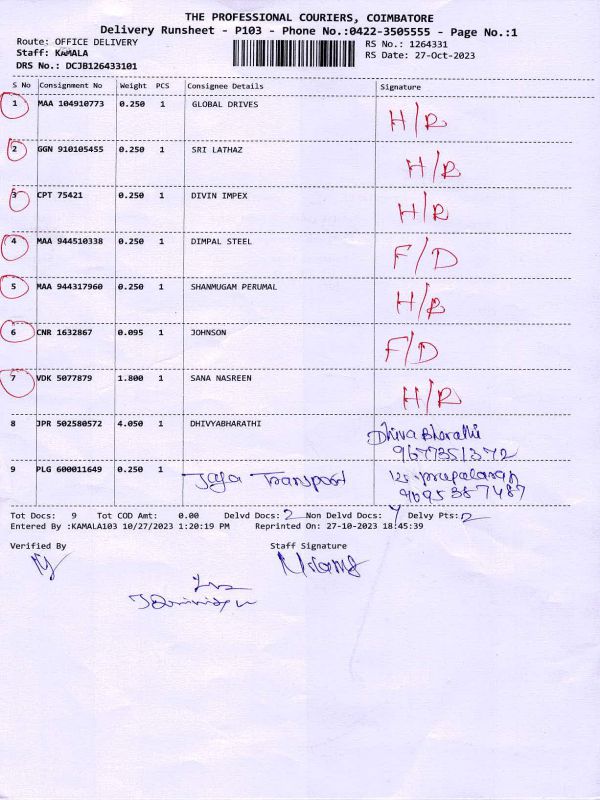 THE PROFESSIONAL COURIERS, COIMBATORE
Delivery Runsheet - P103 - Phone No.:0422-3505555 - Page No.:1
Route: OFFICE DELIVERY RS No.: 1264331
Staff: KAMALA RS Date: 27-Oct-2023
DRS No.: DCJB126433101
S No Consignment No Weight PCS Consignee Details Signature
1 MAA 104910773 0.250 1 GLOBAL DRIVES H/R
2 GGN 910105455 0.250 1 SRI LATHAZ H/R
3 CPT 75421 0.250 1 DIVIN IMPEX H/R
4 MAA 944510338 0.250 1 DIMPAL STEEL F/D
5 MAA 944317960 0.250 1 SHANMUGAM PERUMAL H/R
6 CNR 1632867 0.095 1 JOHNSON F/D
7 VDK 5077879 1.800 1 SANA NASREEN H/R
8 JPR 502580572 4.050 1 DHIVYABHARATHI Dhiva Bharathi
9677351372
9 PLG 600011649 0.250 1 Jaja Transport
9695387487
Tot Docs: 9 Tot COD Amt: 0.00 Delvd Docs: 2 Non Delvd Docs: Delvy Pts: 2
Entered By :KAMALA103 10/27/2023 1:20:19 PM Reprinted On: 27-10-2023 18:45:39
Verified By Staff Signature